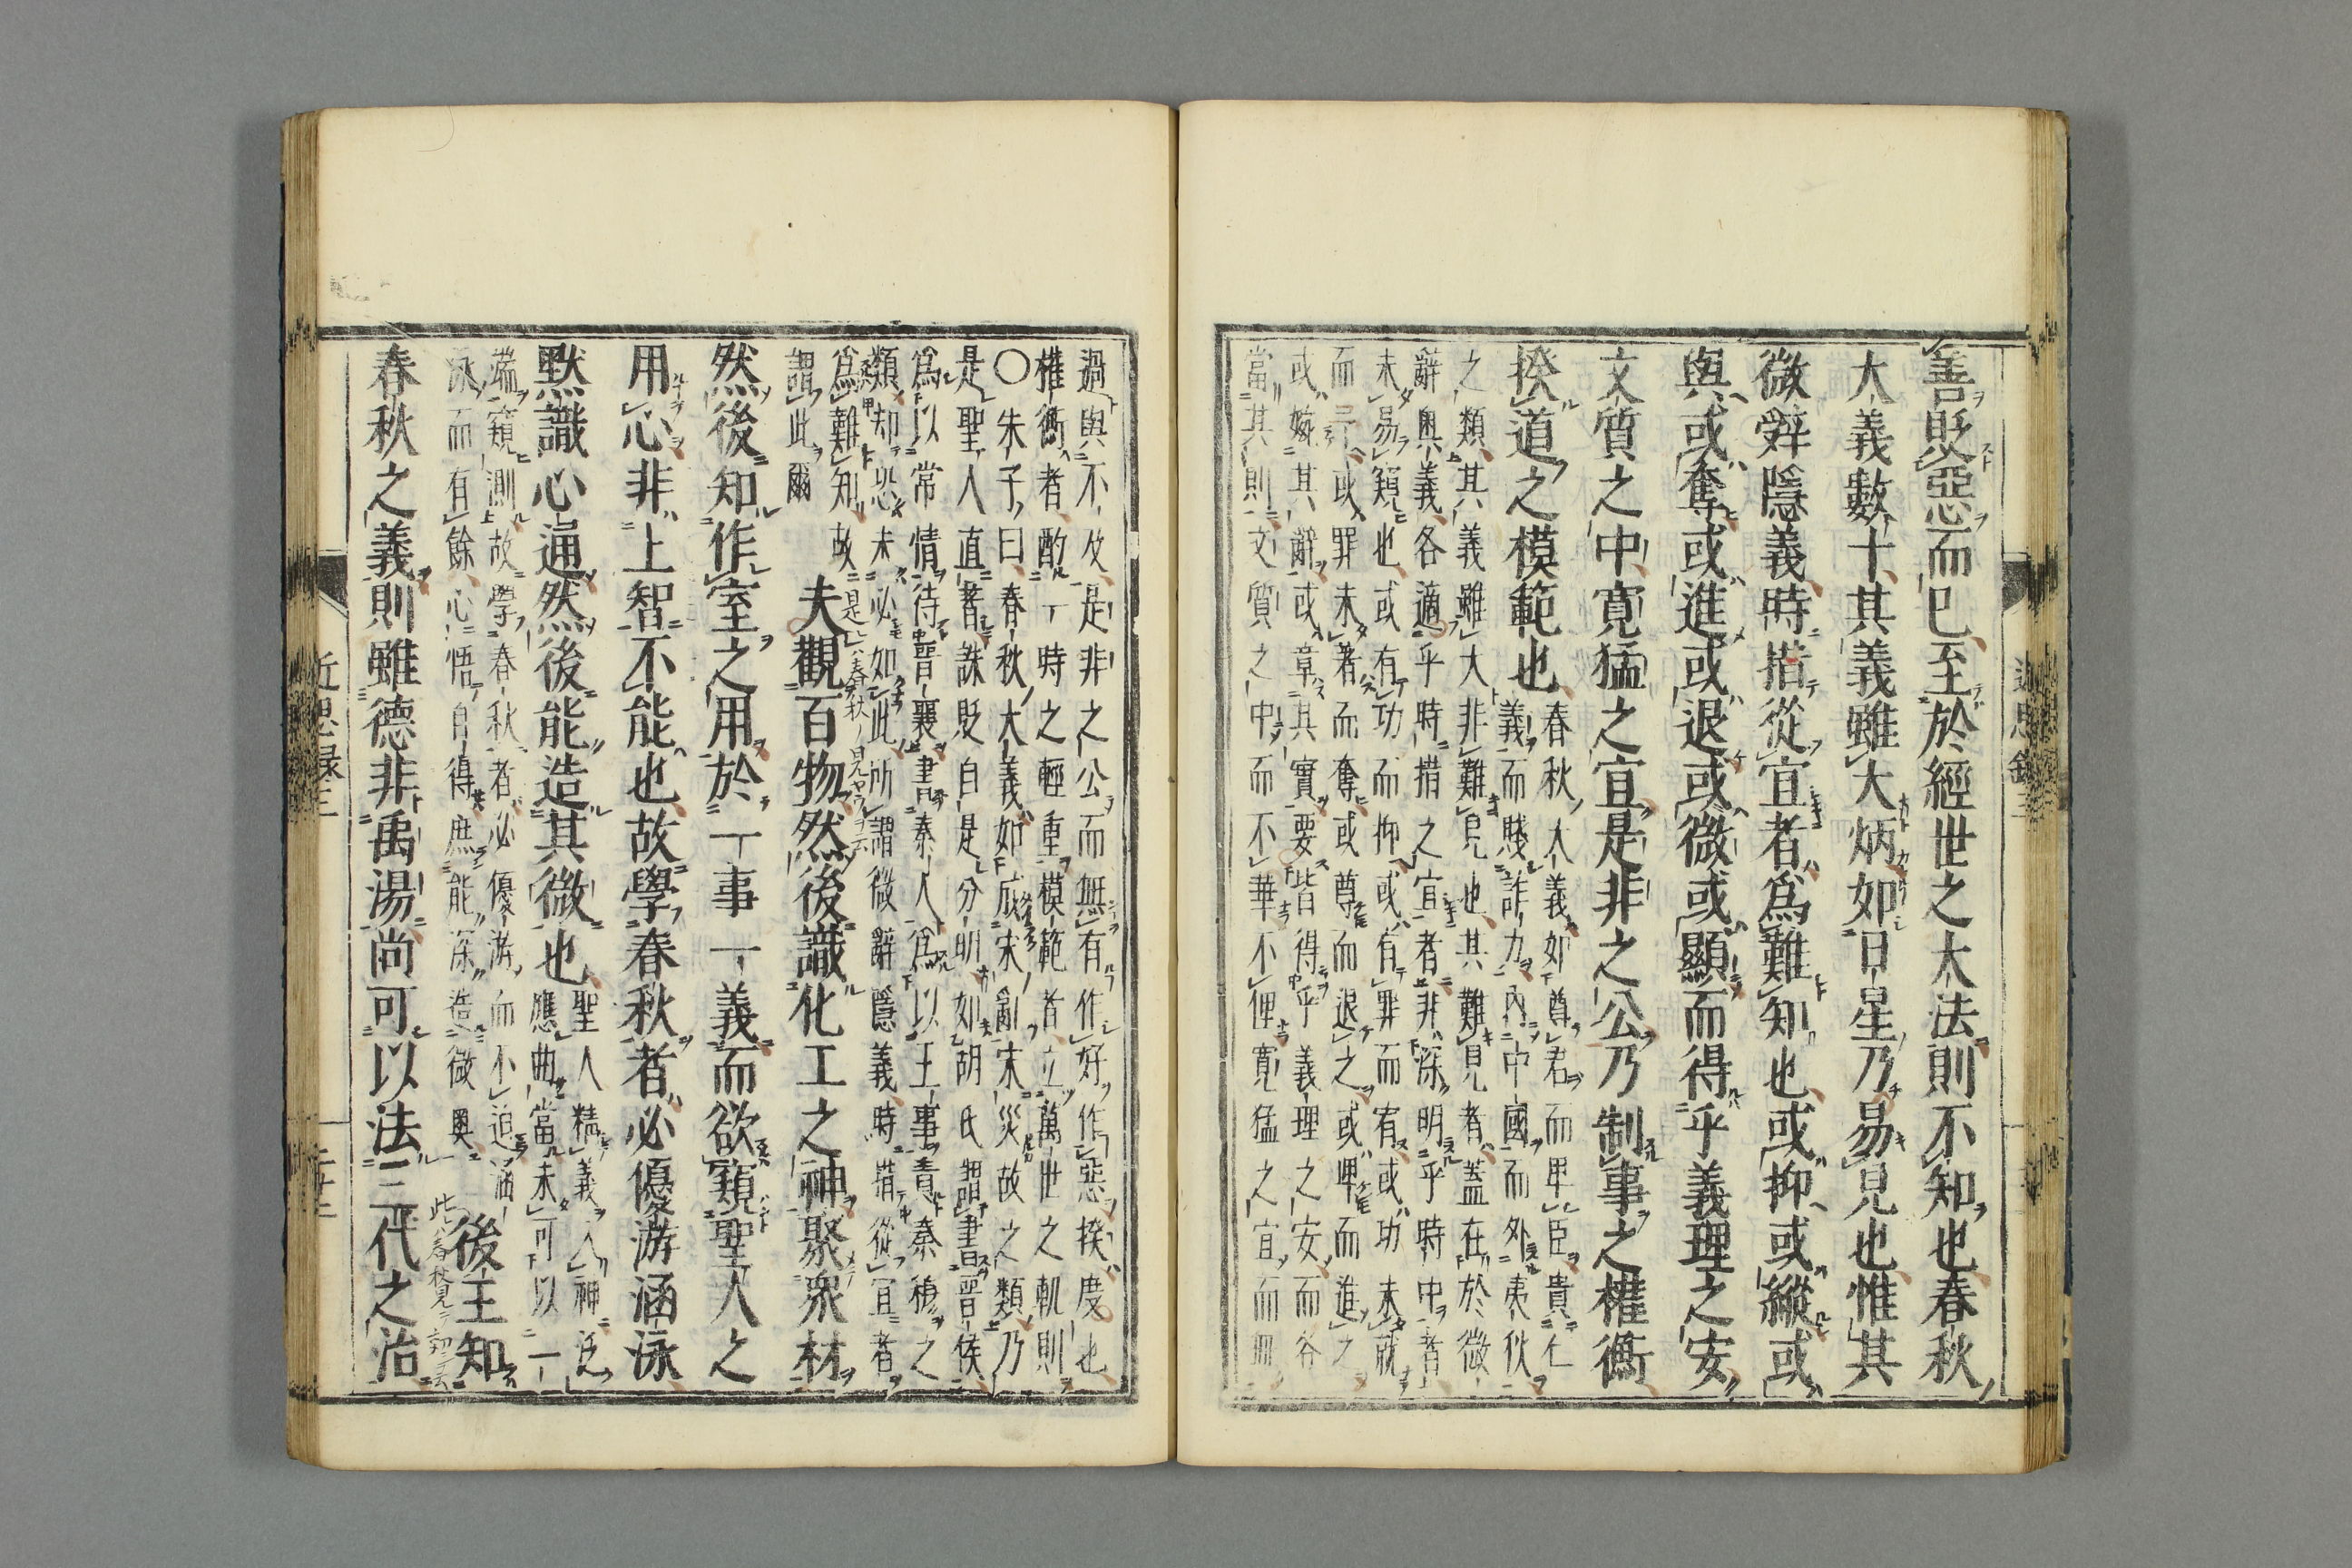 善貶惡而已至於經世之大法則不知也春秋
大義數十其義雖大炳如日星乃易見也惟其
微辭隱義時措從宜者爲難知也或抑或縱或
與或奪或進或退或微或顯而得乎義理之安
文質之中寛猛之宜是非之公乃制事之權衡
揆道之模範也
春秋大義如尊君而卑臣貴仁
義而賤詐力內中國而外夷狄
之類其義雖大非難見也其難見者蓋在於微
辭奥義各適乎時措之宜者非深明乎時中者
未易窺也或有功而抑或有罪而宥或功未就
而予或罪未著而奪或尊而退之或卑而進之
或婉其辭或章其實要皆得乎義理之安而各
當其則文質之中而不華不俚寛猛之宜而無
過與不及是非之公而無有作好作惡揆度也
權衡者酌一時之輕重模範者立萬世之軌則
〇朱子曰春秋大義如成宋亂宋災故之類乃
是聖人直著誅貶自是分明如胡氏謂書晉侯
爲以常情待晉襄書秦人爲以王事責秦穆之
類却恐未必如此所謂微辭隱義時措從宜者
爲難知故
謂此爾
是ハ春秋ノ見ヤウヲ云
夫觀百物然後識化工之神聚衆材
然後知作室之用於一事一義而欲窺聖人之
用心非上智不能也故學春秋者必優游涵泳
默識心通然後能造其微也
聖人精義入神泛
應曲當未可以一
端窺測故學春秋者必優游而不迫涵
泳而有餘心悟自得庶能深造微奧
此ハ春秋見テ知ニ云
後王知
春秋之義則雖德非禹湯尚可以法三代之治
近思録三
二十二